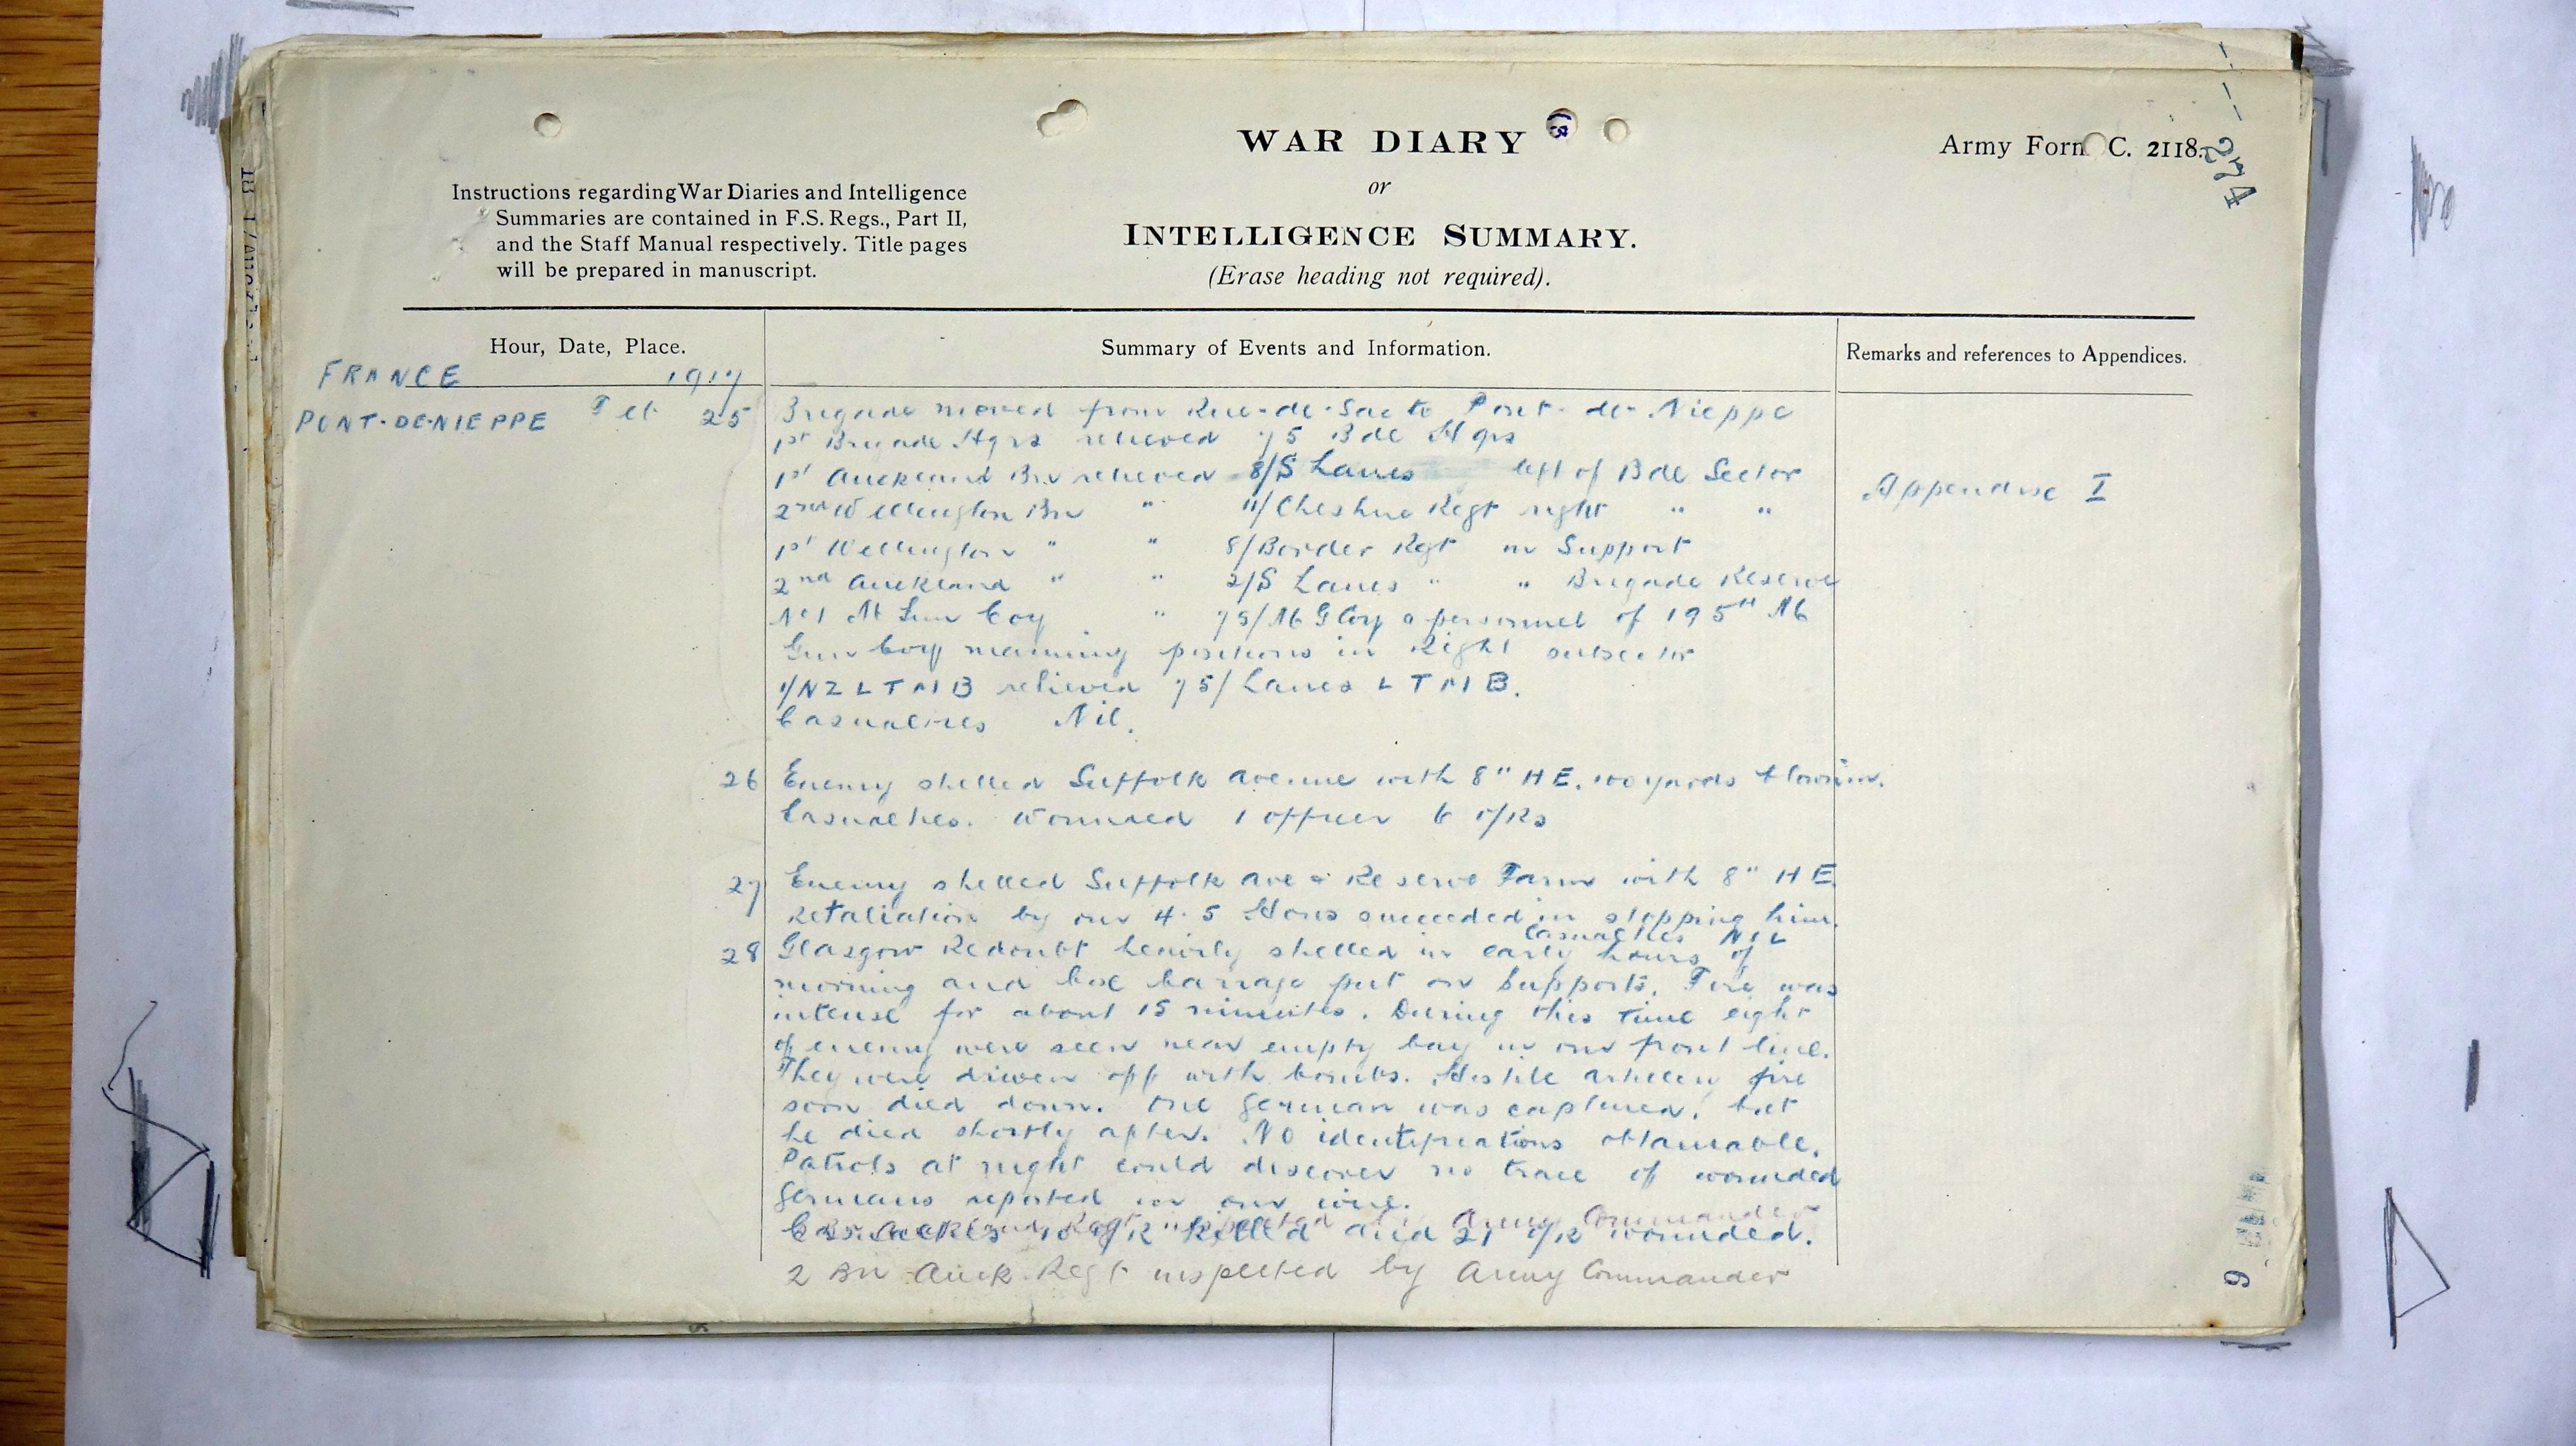 WAR DIARY
or
INTELLIGENCE SUMMARY.
(Erase heading not required).
Army Form C. 2118.
274
Instructions regarding War Diaries and Intelligence
Summaries are contained in F.S. Regs., Part II,
and the Staff Manual respectively. Title pages
will be prepared in manuscript.
Hour, Date, Place.
Summary of Events and Information.
Remarks and references to Appendices.
FRANCE 1917
PONT-DE-NIEPPE Feb 25 Brigade moved from Rue-de-Sac to Pont-de-Nieppe
1st Brigade Hqrs relieved 75 Bde Hqrs
1st Auckland Bn relieved 8/S Lancs left of Bde Sector
Appendix I
2nd Wellington Bn " 11/Cheshire Regt right " "
1st Wellington " " 8/Border Regt in Support
2nd Auckland " " 2/S Lancs " " Brigade Reserve
No 1 M Gun Coy " 75/M G Coy & personnel of 195th M
Gun Coy manning positions in Right subsector
1/NZ L T M B relieved 75/Lancs L T M B.
Casualties Nil.
26 Enemy shelled Suffolk Avenue with 8" HE. 100 yards blown in.
Casualties. Wounded 1 officer 6 O/Rs
27 Enemy shelled Suffolk Ave & Reserve Farm with 8" HE
Retaliation by our 4.5 Hows succeeded in stopping him.
Casualties NIL
28 Glasgow Redoubt heavily shelled in early hours of
morning and box barrage put on Supports. Fire was
intense for about 15 minutes. During this time eight
of enemy were seen near empty bay in our front line.
They were driven off with bombs. Hostile artillery fire
soon died down. One German was captured, but
he died shortly after. No identifications obtainable.
Patrols at night could discover no trace of wounded
Germans reported in our wire.
Casualties 10 O/R killed and 21 O/R wounded.
2 Bn Auck. Regt inspected by Army Commander
9